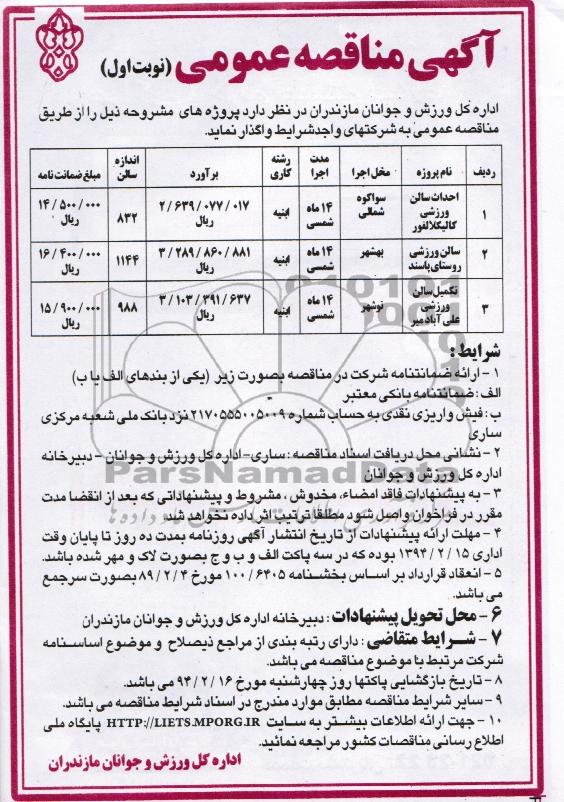 آگهی مناقصه عمومی (نوبت اول)
اداره کل ورزش و جوانان مازندران در نظر دارد پروژه های مشروحه ذیل را از طریق
مناقصه عمومی به شرکتهای واجدشرایط واگذار نماید.
ردیف نام پروژه محل اجرا مدت اجرا رشته کاری برآورد اندازه سالن مبلغ ضمانت نامه
۱ احداث سالن ورزشی کالیکلالفور سوادکوه شمالی ۱۴ ماه شمسی ابنیه ۲/۶۳۹/۰۷۷/۰۱۷ ریال ۸۳۲ ۱۴/۵۰۰/۰۰۰ ریال
۲ سالن ورزشی روستای پاسند بهشهر ۱۴ ماه شمسی ابنیه ۳/۲۸۹/۸۶۰/۸۸۱ ریال ۱۱۴۴ ۱۶/۴۰۰/۰۰۰ ریال
۳ تکمیل سالن ورزشی علی آباد میر نوشهر ۱۴ ماه شمسی ابنیه ۳/۱۰۳/۳۹۱/۶۳۷ ریال ۹۸۸ ۱۵/۹۰۰/۰۰۰ ریال
شرایط :
۱ - ارائه ضمانتنامه شرکت در مناقصه بصورت زیر (یکی از بندهای الف یا ب)
الف : ضمانتنامه بانکی معتبر
ب : فیش واریزی نقدی به حساب شماره ۲۱۷۰۵۵۵۰۰۵۰۰۹ نزد بانک ملی شعبه مرکزی
ساری
۲ - نشانی محل دریافت اسناد مناقصه : ساری - اداره کل ورزش و جوانان - دبیرخانه
اداره کل ورزش و جوانان
ParsNamadData
۳ - به پیشنهادات فاقد امضاء، مخدوش ، مشروط و پیشنهاداتی که بعد از انقضا مدت
مقرر در فراخوان واصل شود مطلقا ترتیب اثر داده نخواهد شد.
۴ - مهلت ارائه پیشنهادات از تاریخ انتشار آگهی روزنامه بمدت ده روز تا پایان وقت
اداری ۱۳۹۴/۲/۱۵ بوده که در سه پاکت الف و ب و ج بصورت لاک و مهر شده باشد.
۵ - انعقاد قرارداد بر اساس بخشنامه ۱۰۰/۶۴۰۵ مورخ ۸۹/۲/۴ بصورت سرجمع
می باشد.
۶ - محل تحویل پیشنهادات : دبیرخانه اداره کل ورزش و جوانان مازندران
۷ - شرایط متقاضی : دارای رتبه بندی از مراجع ذیصلاح و موضوع اساسنامه
شرکت مرتبط با موضوع مناقصه می باشد.
۸ - تاریخ بازگشایی پاکتها روز چهارشنبه مورخ ۹۴/۲/۱۶ می باشد.
۹ - سایر شرایط مناقصه مطابق موارد مندرج در اسناد شرایط مناقصه می باشد.
۱۰ - جهت ارائه اطلاعات بیشتر به سایت HTTP://LIETS.MPORG.IR پایگاه ملی
اطلاع رسانی مناقصات کشور مراجعه نمائید.
اداره کل ورزش و جوانان مازندران